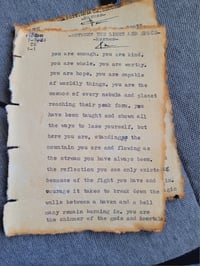 BETWEEN THE LIGHT AND
you are enough. you are kind.
you are whole. you are worthy.
you are hope. you are capable
of worldly things. you are the
essence of every nebula and planet
reaching their peak form. you
have been taught and shown all
the ways to lose yourself, but
here you are, standing the
mountain you are and flowing as
the stream you have always been.
the reflection you see only exists
because of the fight you have and
courage it takes to break down the
walls between a haven and a hell
many remain burning in. you are
the shimmer of the gods and